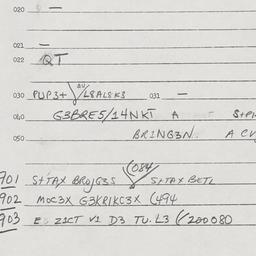 020 —
021 —
022 QT
030 PUP3+ L8ALSK3 031 —
040 G3BRE5/14NKT A S+PL
050 BR1NG3N A CV
(084
901 S+TAX BROJG3S S+TAX BETL
902 MOC3X G3KRIKC3X (494
903 E Z1CT V1 D3 TU. L3 (200080